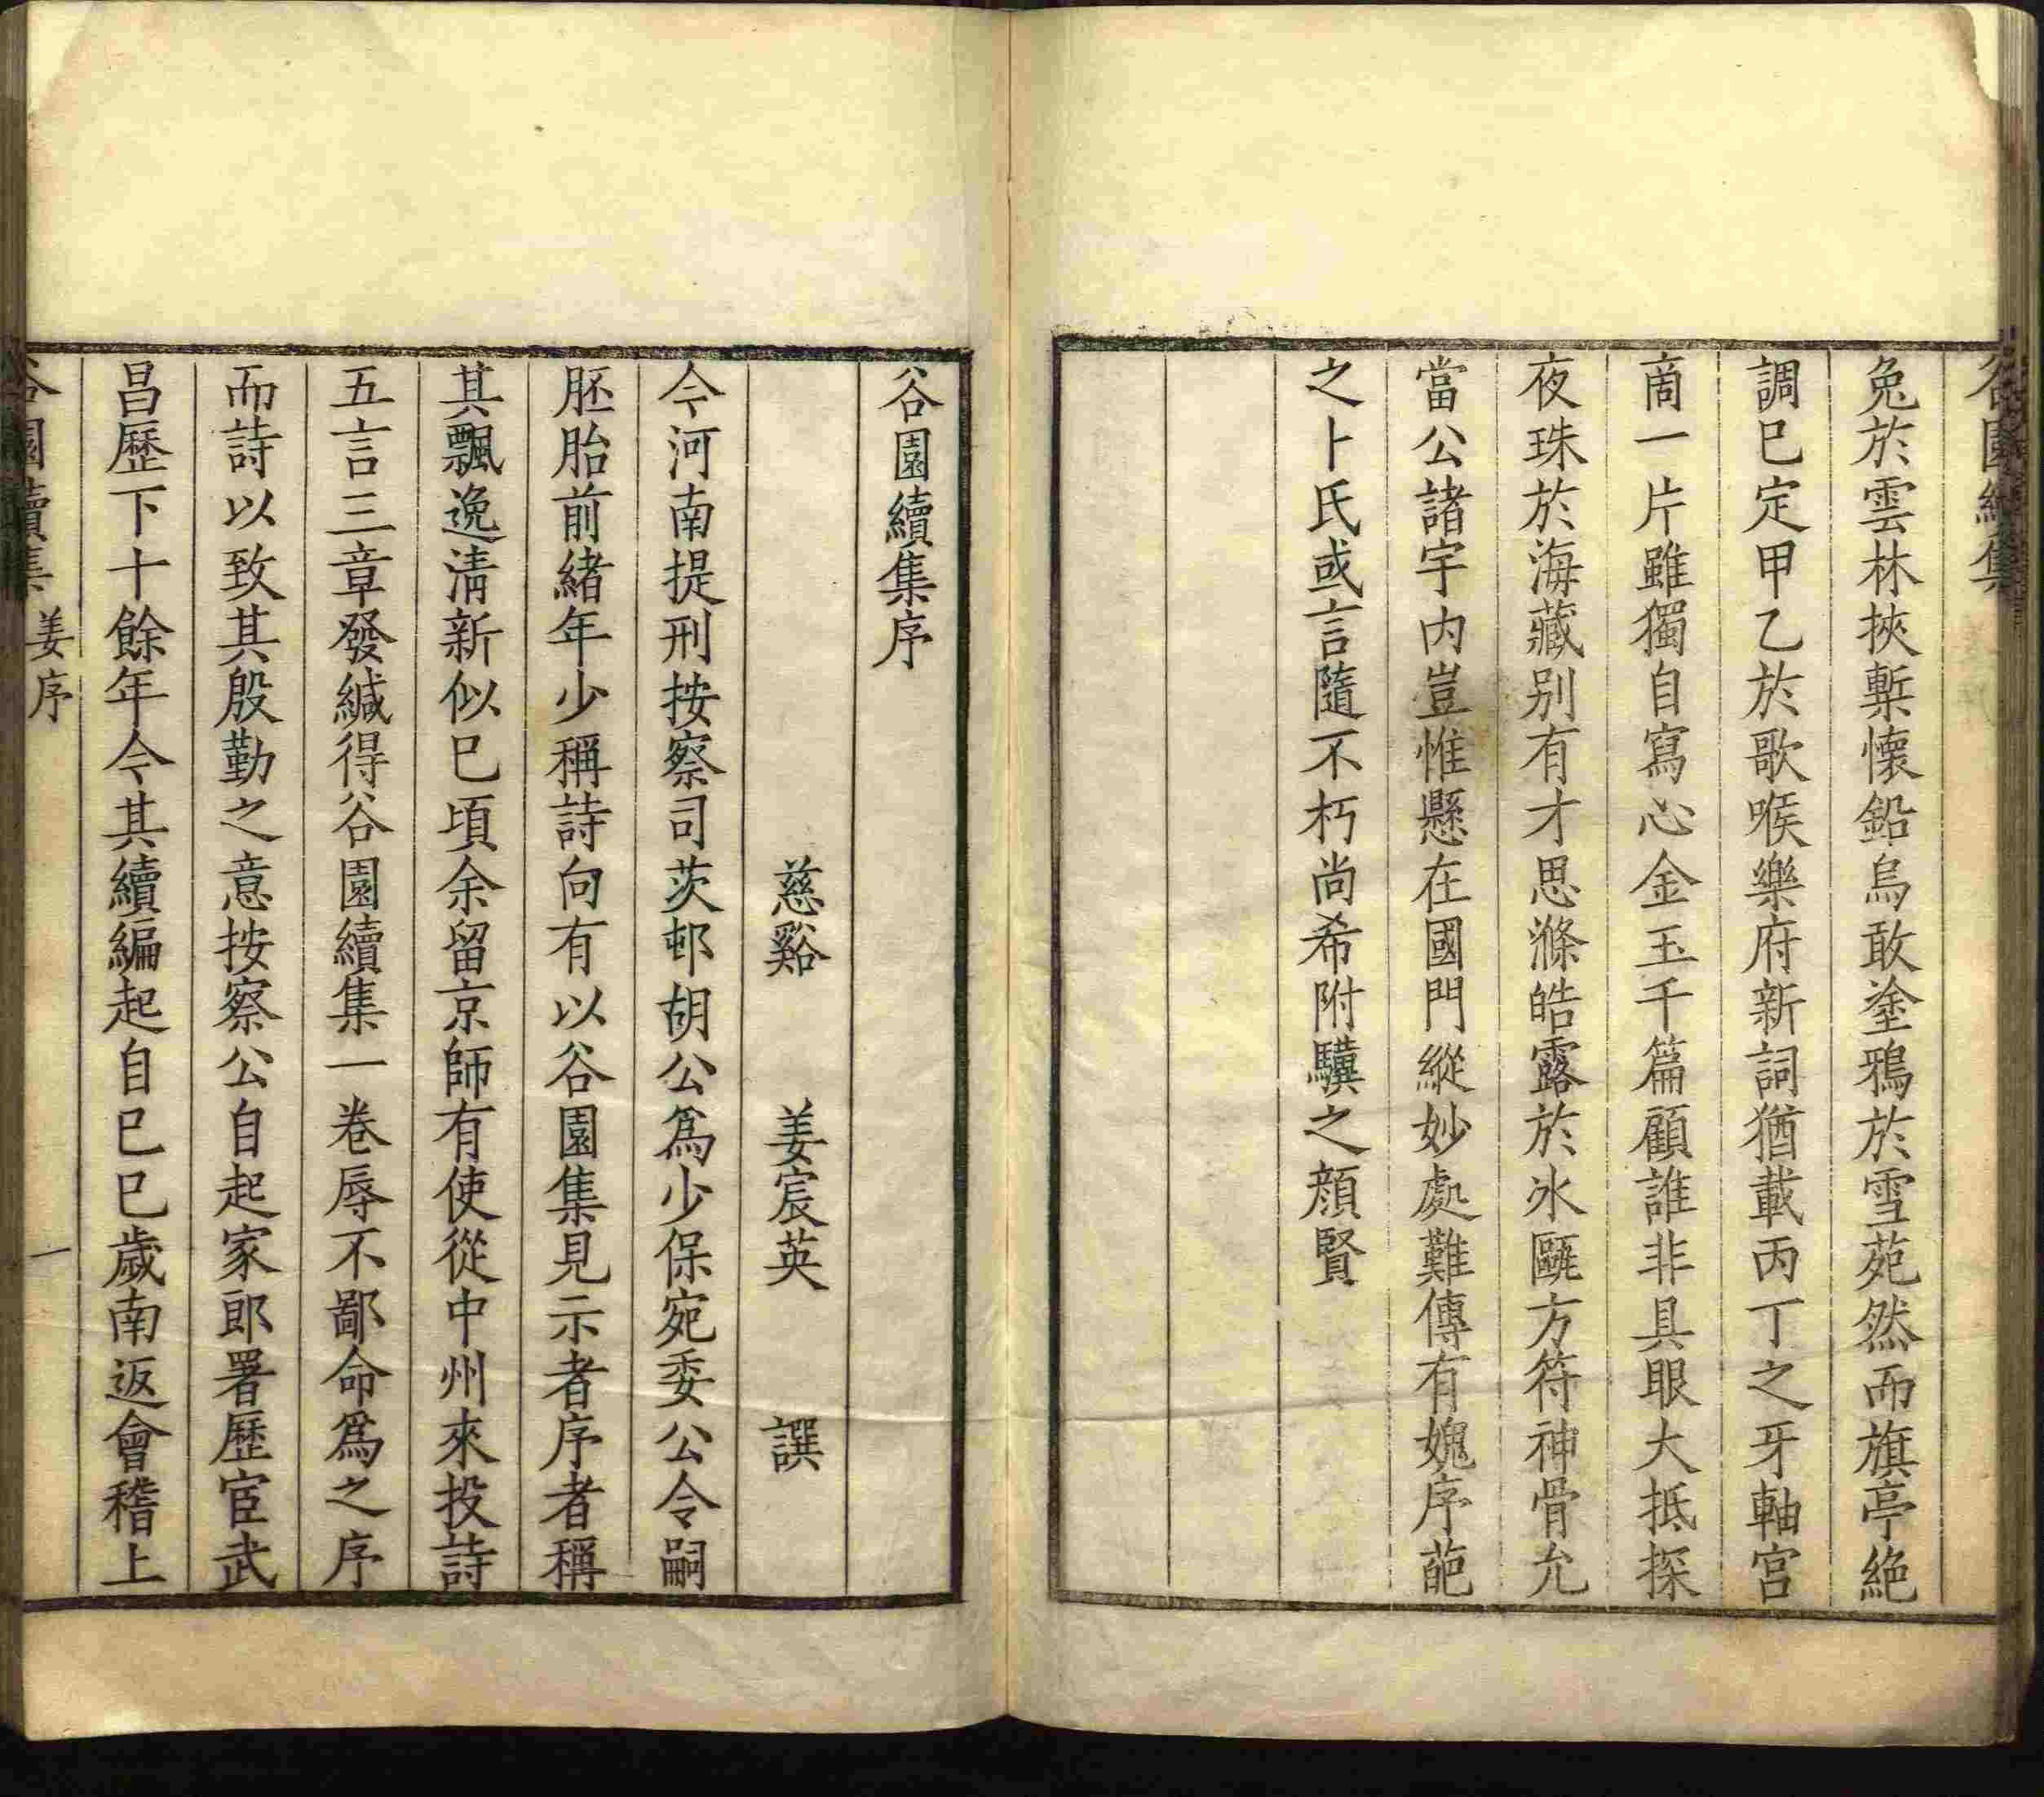 谷園續集
兔於雲林挾槧懷鉛烏敢塗鴉於雪苑然而旗亭絕
調已定甲乙於歌喉樂府新詞猶載丙丁之牙軸宫
商一片雖獨自寫心金玉千篇顧誰非具眼大抵探
夜珠於海藏别有才思滌皓露於氷甌方符神骨允
當公諸宇内豈惟懸在國門縱妙處難傳有媿序葩
之卜氏或言隨不朽尚希附驥之顔賢
谷園續集序
慈谿 姜宸英 譔
今河南提刑按察司茨邨胡公爲少保宛委公令嗣
胚胎前緒年少稱詩向有以谷園集見示者序者稱
其飄逸清新似已頃余留京師有使從中州來投詩
五言三章發緘得谷園續集一卷辱不鄙命爲之序
而詩以致其殷勤之意按察公自起家郎署歷宦武
昌歷下十餘年今其續編起自己巳歲南返會稽上
谷園續集 姜序 一